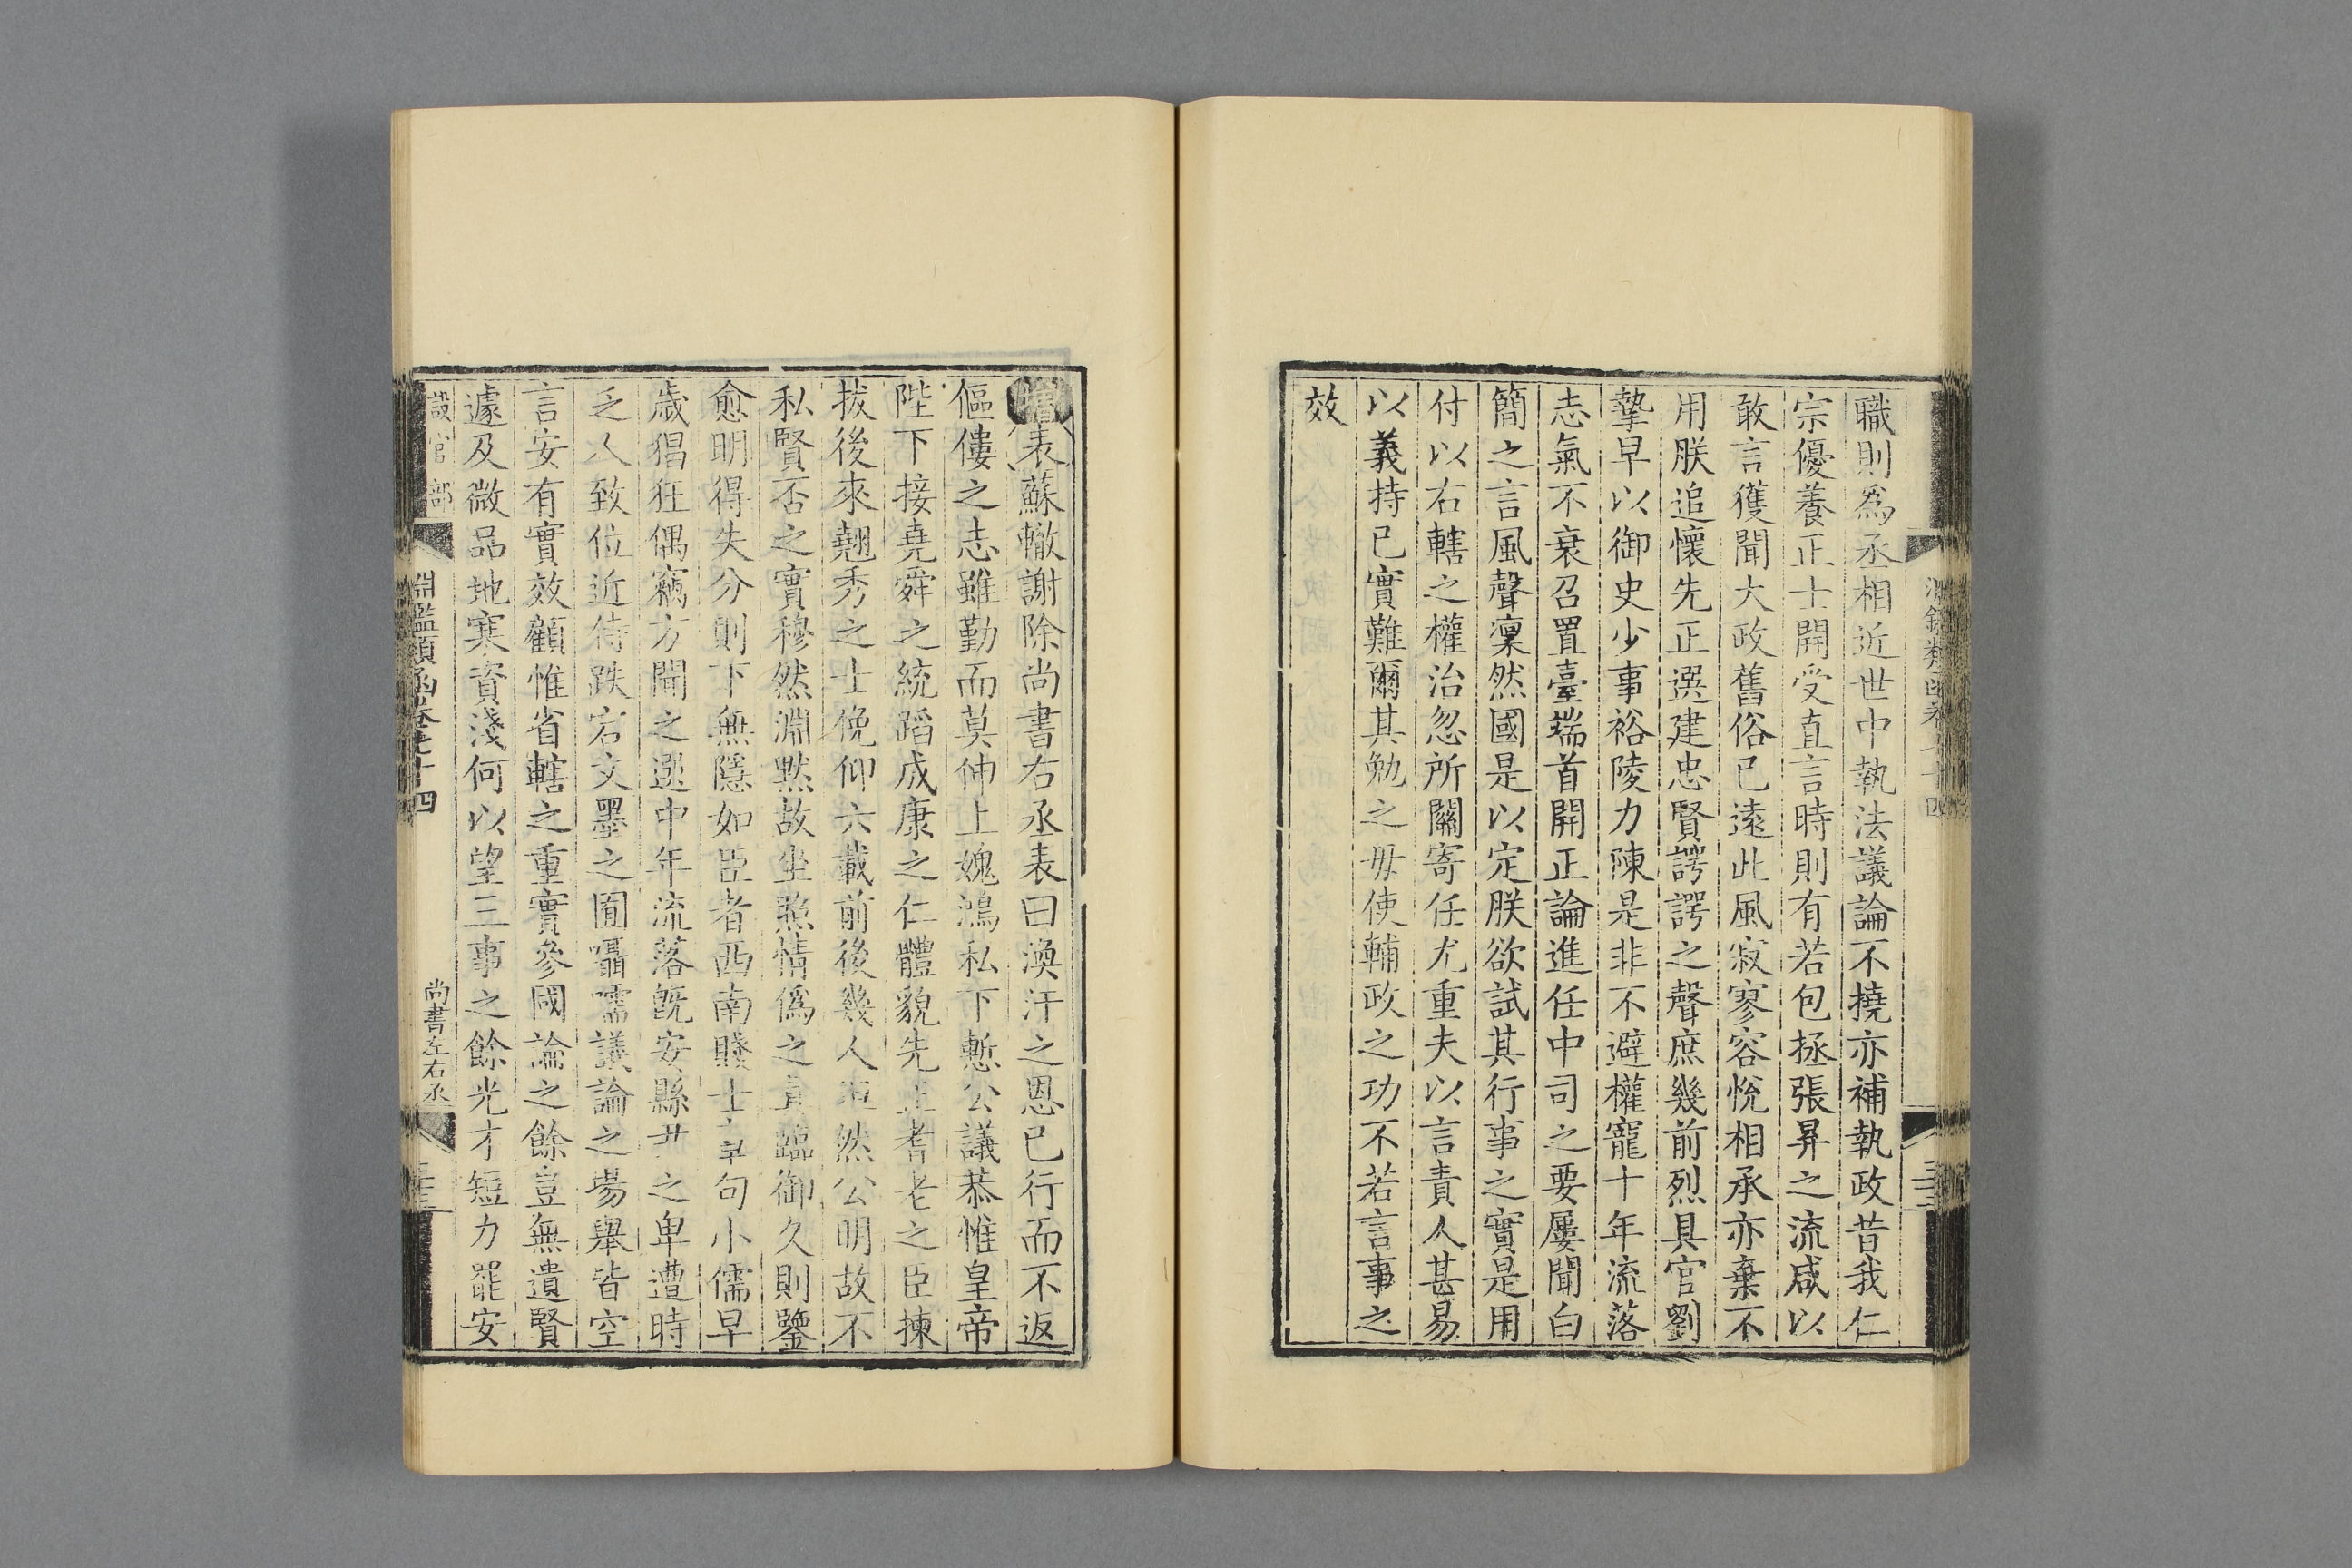 職則爲丞相近世中執法議論不撓亦補執政昔我仁
宗優養正士開受直言時則有若包拯張昇之流咸以
敢言獲聞大政舊俗已遠此風寂寥容悅相承亦棄不
用朕追懷先正選建忠賢諤諤之聲庶幾前烈具官劉
摯早以御史少事裕陵力陳是非不避權寵十年流落
志氣不衰召置臺端首開正論進任中司之要屢聞白
簡之言風聲凜然國是以定朕欲試其行事之實是用
付以右轄之權治忽所關寄任尤重夫以言責人甚易
以義持已實難爾其勉之毋使輔政之功不若言事之
效
增表蘇轍謝除尚書右丞表曰渙汗之恩已行而不返
傴僂之志雖勤而莫伸上媿鴻私下慙公議恭惟皇帝
陛下接堯舜之統蹈成康之仁體貌先正耆老之臣揀
拔後來翹秀之士俛仰六載前後幾人 然公明故不
私賢否之實穆然淵默故坐照情僞之 臨御久則鑒
愈明得失分則下無隱如臣者西南賤士章句小儒早
歲猖狂偶竊方聞之選中年流落旣安縣 之卑遭時
乏人致位近侍跌宕文墨之囿囁嚅議論之場舉皆空
言安有實效顧惟省轄之重實參國論之餘豈無遺賢
遽及微品地寒資淺何以望三事之餘光才短力罷安
設官部
淵鑑類函卷七十四
尚書左右丞